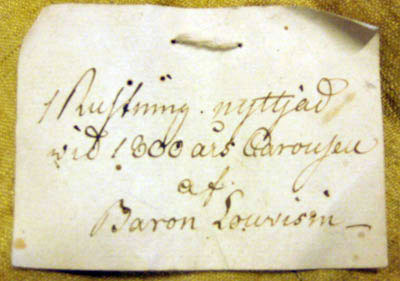 1 Rustning. nyttjad
vid 1800 års Carousel
af.
Baron Louvisin